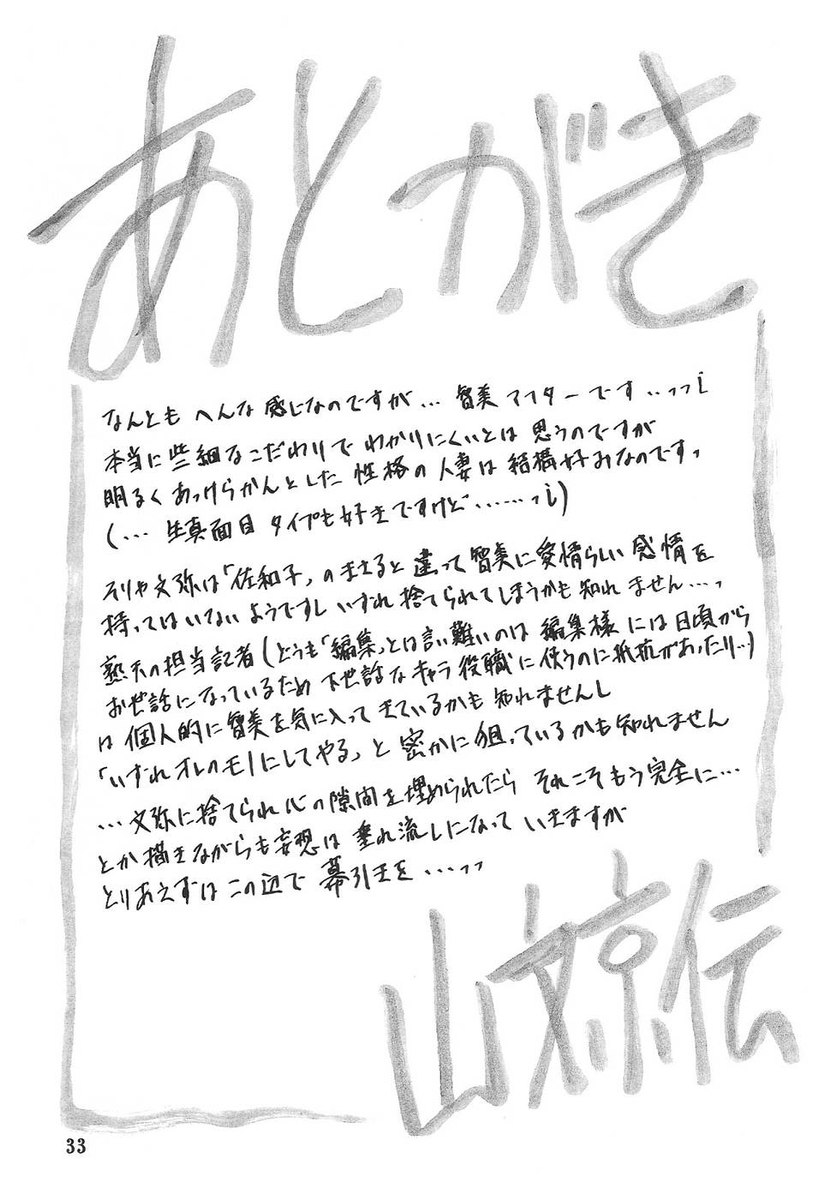 あとがき
なんとも へんな 感じなのですが… 智美 アフターです‥‥っっi
本当に些細なこだわりで わかりにくいとは 思うのですが
明るく あっけらかんとした 性格の 人妻は 結構好みなのですっ
(… 生真面目 タイプも好きですけど………っi)
そりゃ文弥は「佐和子」の ときと 違って 智美に愛情らしい 感情を
持ってはいないようですし いずれ 捨てられてしまうかも 知れません…っ
熟天の担当記者(どうも「編集」とは言い難いのは 編集様 には日頃から
お世話になっているため 下世話な キャラ 役職に 使うのに抵抗があったり‥)
は 個人的に 智美を気に入って きているかも 知れませんし
「いずれオレのモノにしてやる」と 密かに 狙っているかも知れません
… 文弥に捨てられ心の 隙間を埋められたら それこそもう完全に…
とか描きながらも妄想は 垂れ流しになって いきますが
とりあえずは この辺で 幕引きを…っっ
山文京伝
33